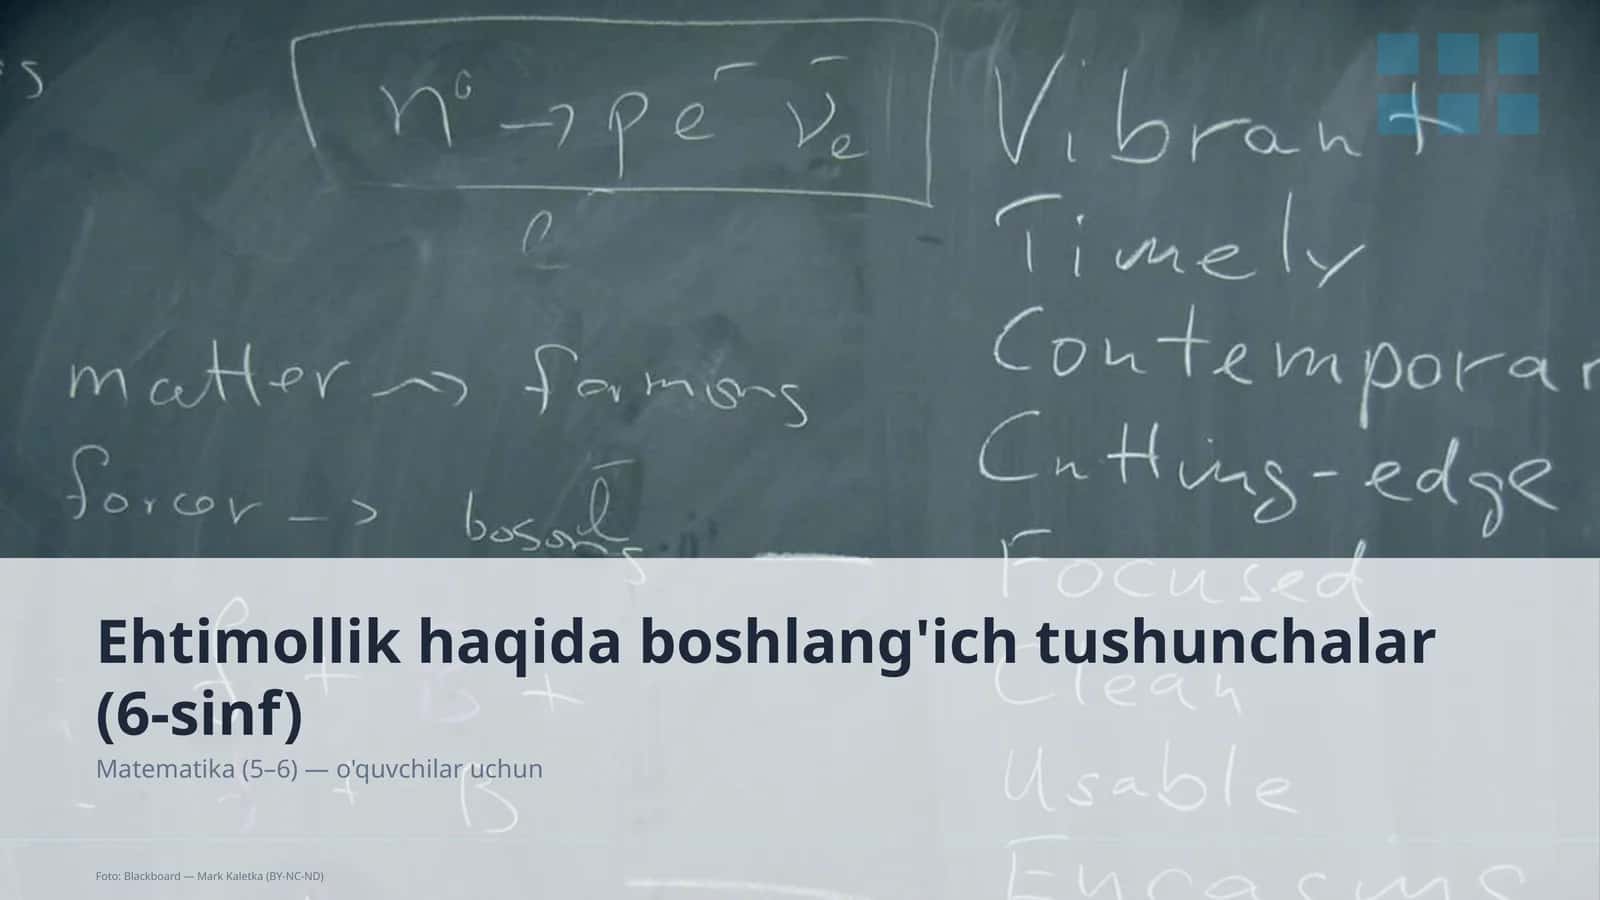 s
n⁰ → p e⁻ ν̄e
e
matter → fermions
forcer -> bosons
Vibrant
Timely
Contemporar
Cutting-edge
Focused
Clean
Usable
Ehtimollik haqida boshlang'ich tushunchalar
(6-sinf)
Matematika (5–6) — o'quvchilar uchun
B
Foto: Blackboard — Mark Kaletka (BY-NC-ND)